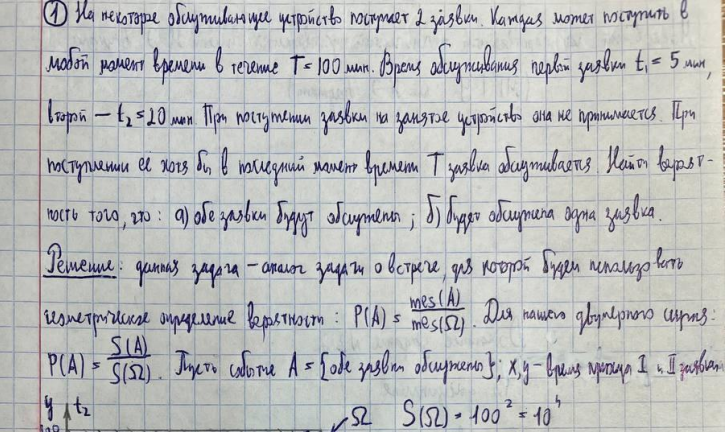 ① На некоторое обслуживающее устройство поступает 2 заявки. Каждая может поступить в
любой момент времени в течение T = 100 мин. Время обслуживания первой заявки t₁ = 5 мин,
второй – t₂ = 20 мин. При поступлении заявки на занятое устройство она не принимается. При
поступлении её хотя бы в последний момент времени T заявка обслуживается. Найти вероят-
ность того, что: а) обе заявки будут обслужены; б) будет обслужена одна заявка.
Решение: данная задача – аналог задачи о встрече, для которой будем использовать
геометрическое определение вероятности: P(A) = mes(A)/mes(Ω). Для нашего двумерного случая:
P(A) = S(A)/S(Ω). Пусть событие A = {обе заявки обслужены}; x, y – время прихода I и II заявки
y t₂ Ω S(Ω) = 100² = 10⁴